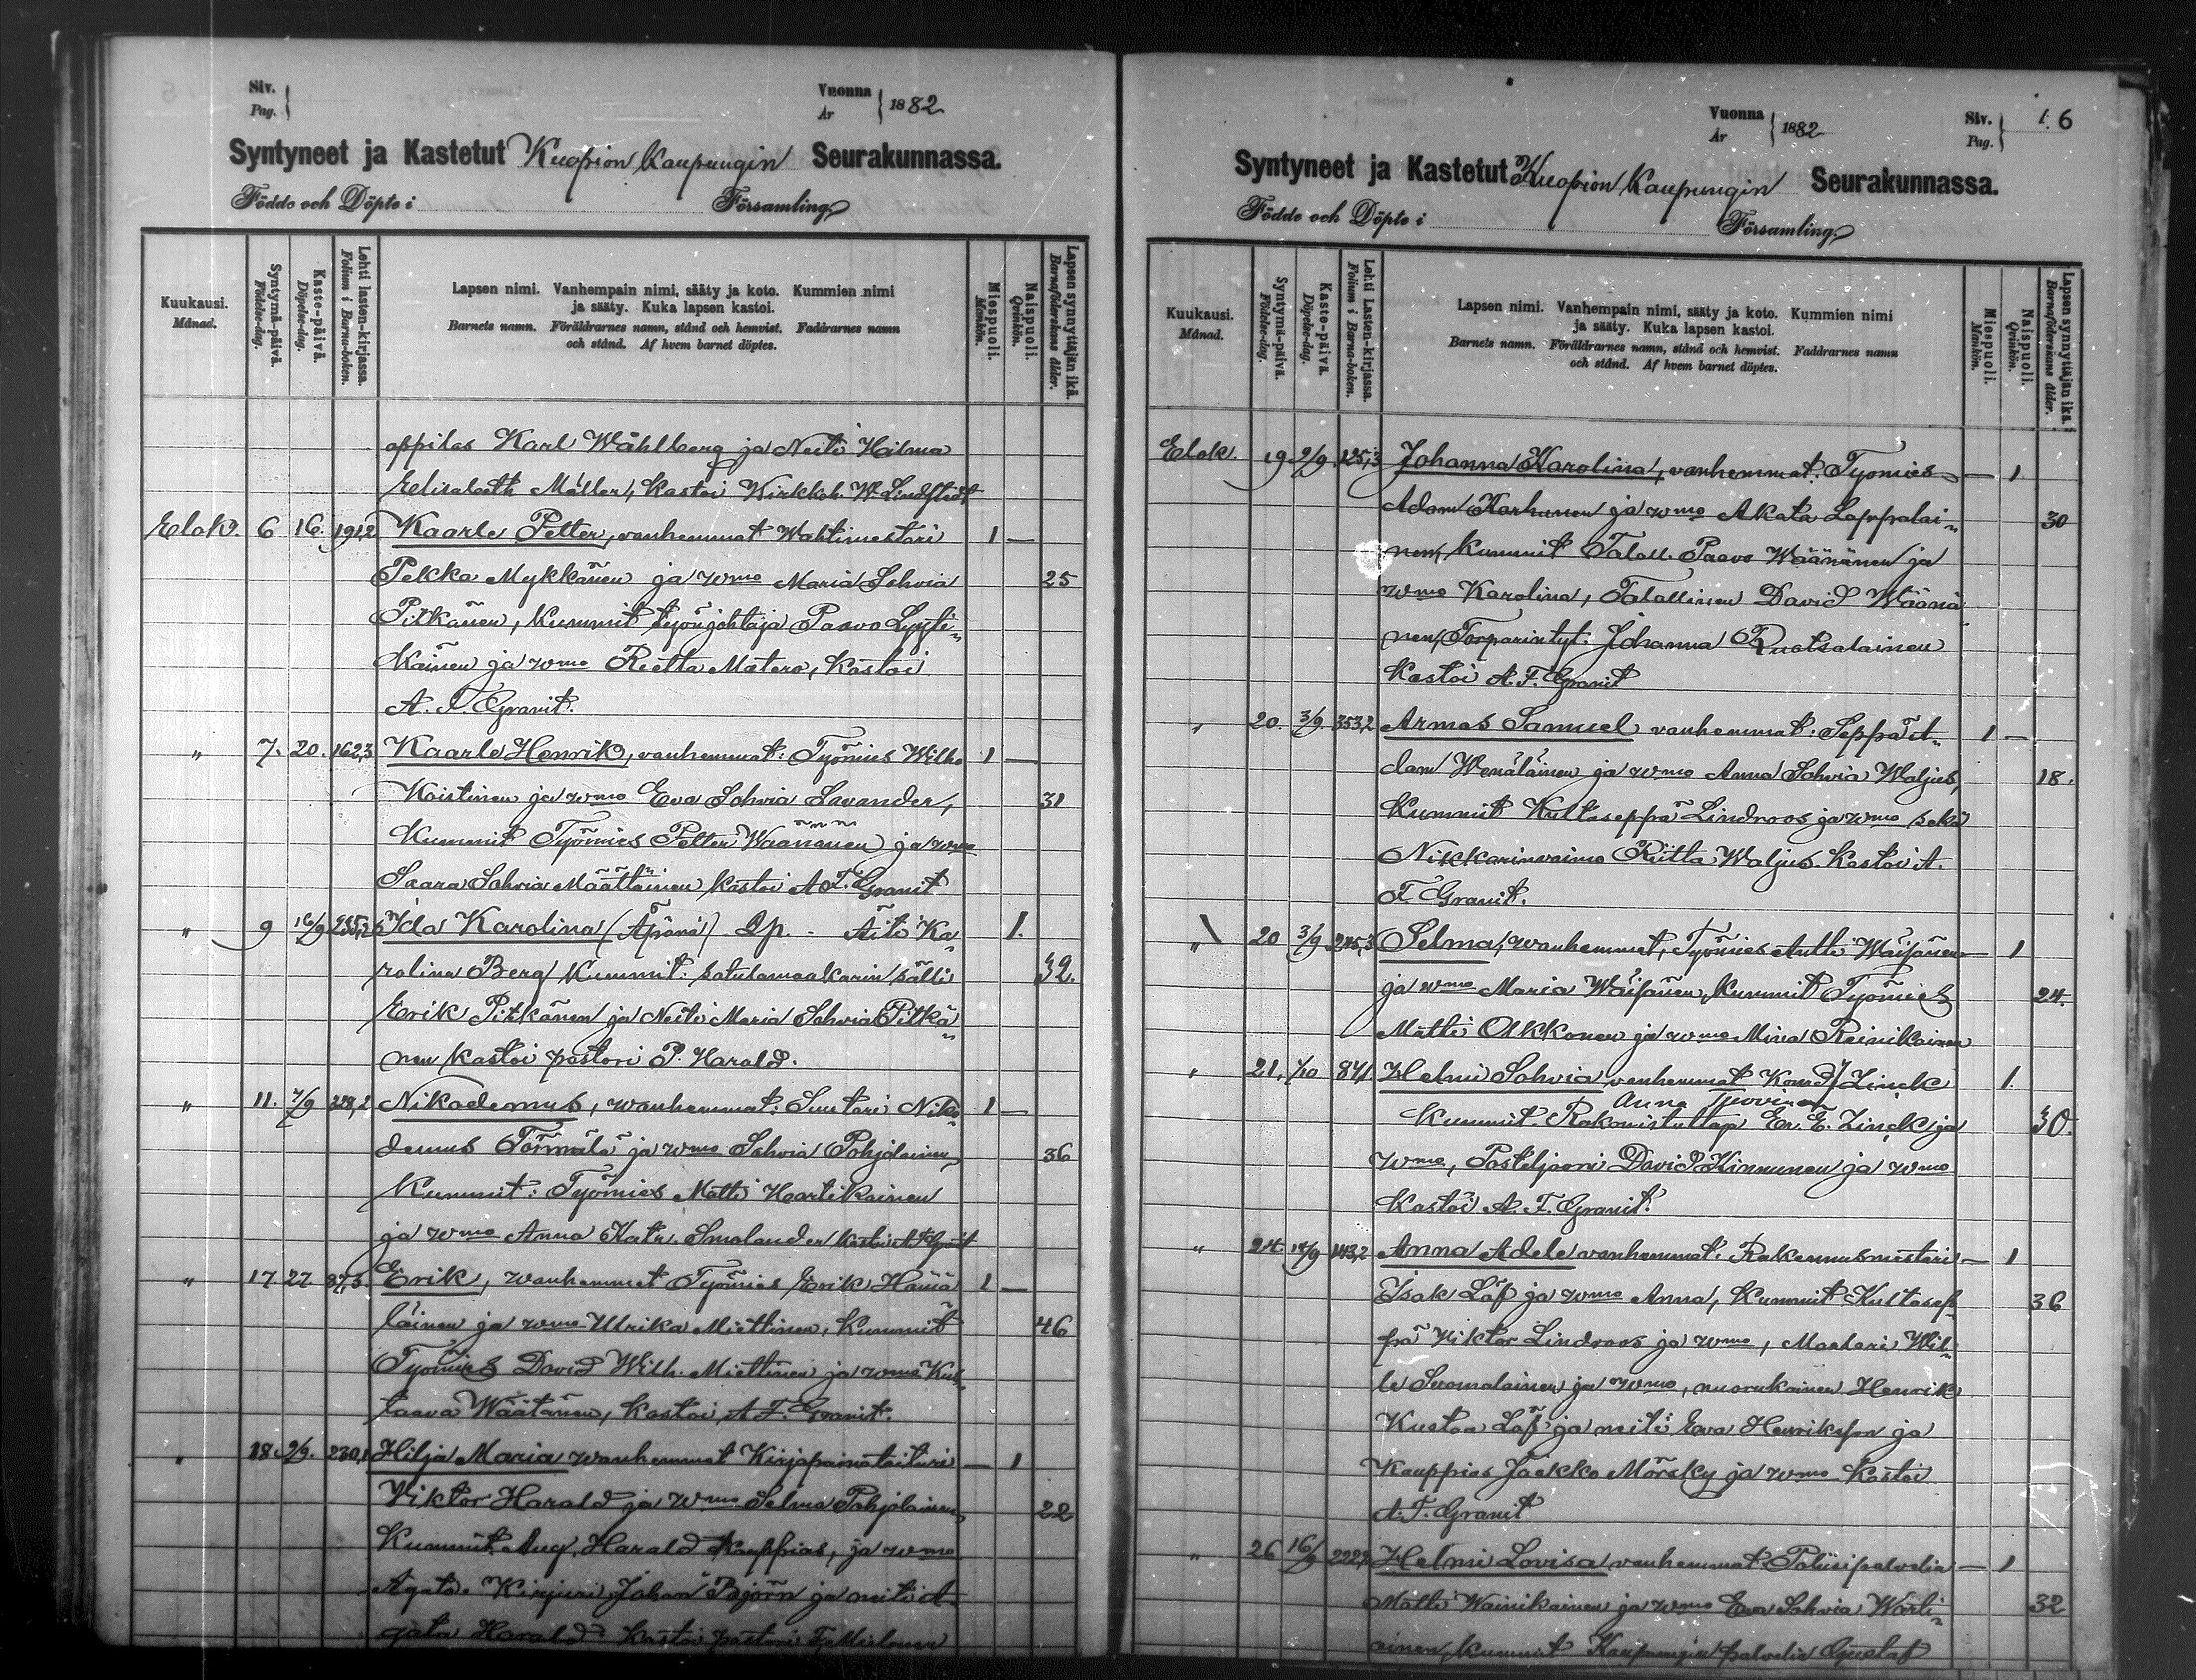 Siv.
Pag.
Vuonna
År
1882
Syntyneet ja Kastetut Kuopion Kaupungin Seurakunnassa.
Födde och Döpte i Församling
Kuukausi.
Månad.
Syntymä-päivä.
Födelse-dag.
Kaste-päivä.
Döpelse-dag.
Lehti lasten-kirjassa.
Folium i Barna-boken.
Lapsen nimi. Vanhempain nimi, sääty ja koto. Kummien nimi
ja sääty. Kuka lapsen kastoi.
Barnets namn. Föräldrarnes namn, stånd och hemvist. Faddrarnes namn
och stånd. Af hvem barnet döptes.
Miespuoli.
Mankön.
Naispuoli.
Qvinkön.
Lapsen synnyttäjän ikä.
Barnaföderskans ålder.
oppilas Karl Wåhlberg ja Neiti Hilma
Elisabeth Möller, Kastoi Kirkkoh. W. Lindstedt
Elok. 6 16. 191,2 Kaarle Petter, vanhemmat Wahtimestari 1 —
Pekka Mykkänen ja wmo Maria Sohvia 25
Pitkänen, Kummit työnjohtaja Paavo Lyyti-
käinen ja wmo Reetta Matero, Kastoi
A. F. Granit.
" 7. 20. 162,3 Kaarle Henrik, vanhemmat: Työmies Wilho 1 —
Koistinen ja wmo Eva Sohvia Savander, 31
Kummit Työmies Petter Wäänänen ja wmo
Saara Sohvia Määttäinen kastoi A F. Granit
" 9 16/9 Ida Karolina (Äpärä) Äiti Ka-
1.
rolina Berg Kummit: satulamaakarin sälli 32.
Erik Pitkänen ja Neiti Maria Sohvia Pitkä-
nen kastoi pastori P. Harald.
" 11. 7/9 Nikodemus, vanhemmat: Suutari Niko- 1 —
demus Törmälä ja wmo Sohvia Pohjolainen 36
Kummit: Työmies Matti Hartikainen
ja wmo Anna Katr. Smolander kastoi A F Granit
" 17 27 37,3. Erik, vanhemmat Työmies Erik Hämä- 1 —
läinen ja wmo Ulrika Miettinen, Kummit 46
Työmies David Wilh. Miettinen ja wmo Kus-
taava Wäätänen, Kastoi A F. Granit.
" 18. 2/9. 230,1 Hilja Maria vanhemmat Kirjapainotaituri — 1
Viktor Harald ja wmo Selma Pohjolainen, 22
Kummit Aug. Harald Kauppias, ja wmo
Agata. Kirjuri Johan Björn ja neiti A-
gata Harald Kastoi pastori
Vuonna
År
1882
Siv.
Pag.
1. 6
Syntyneet ja Kastetut Kuopion Kaupungin Seurakunnassa.
Födde och Döpte i Församling
Kuukausi.
Månad.
Syntymä-päivä.
Födelse-dag.
Kaste-päivä.
Döpelse-dag.
Lehti Lasten-kirjassa.
Folium i Barna-boken.
Lapsen nimi. Vanhempain nimi, sääty ja koto. Kummien nimi
ja sääty. Kuka lapsen kastoi.
Barnets namn. Föräldrarnes namn, stånd och hemvist. Faddrarnes namn
och stånd. Af hvem barnet döptes.
Miespuoli.
Mankön.
Naispuoli.
Qvinkön.
Lapsen synnyttäjän ikä.
Barnaföderskans ålder.
Elok. 19 2/9. 125,3 Johanna Karolina, vanhemmat: Työmies — 1
Adam Karhunen ja wmo Akata Lappalai- 30
nen, Kummit Taloll. Paavo Wäänänen ja
wmo Karolina, Talollinen David Wäänä-
nen, Torparintyt. Johanna Ruotsalainen
Kastoi A. F. Granit
" 20. 3/9. 353,2 Armas Samuel vanhemmat: Seppä A- 1 —
dam Wenäläinen ja wmo Anna Sohvia Waljus, 18.
Kummit Kultaseppä Lindroos ja wmo sekä
Nikkarinvaimo Riitta Waljus Kastoi A.
F. Granit.
" 20 3/9 Selma, vanhemmat, Työmies Antti Wäisänen — 1
ja wmo Maria Wäisänen, Kummit Työmies 24.
Matti Okkonen ja wmo Mina Reinikainen
" 21. 1/10 87,1 Helmi Sohvia vanhemmat Zinck 1.
Anna
Kummit. Er. E. Zinck ja 30.
wmo, Postiljooni David Kinnunen ja wmo
Kastoi A. F. Granit.
" 24 143,2 Anna Adele vanhemmat: Rakennusmestari — 1
Isak Löf ja wmo Anna, Kummit Kultasep- 36
pä Viktor Lindroos ja wmo, Maalari Wil-
le Suomalainen ja wmo, nuorukainen Henrik
Kustaa Löf ja neiti Eva Henrikson ja
Kauppias Jaakko Mörsky ja wmo Kastoi
A. F. Granit
" 26 16/9 222,2 Helmi Lovisa, vanhemmat Poliisipalvelia — 1
Matti Wainikainen ja wmo Eva Sohvia Warti- 32
ainen, Kummit Kaupungin palvelia Gustaf